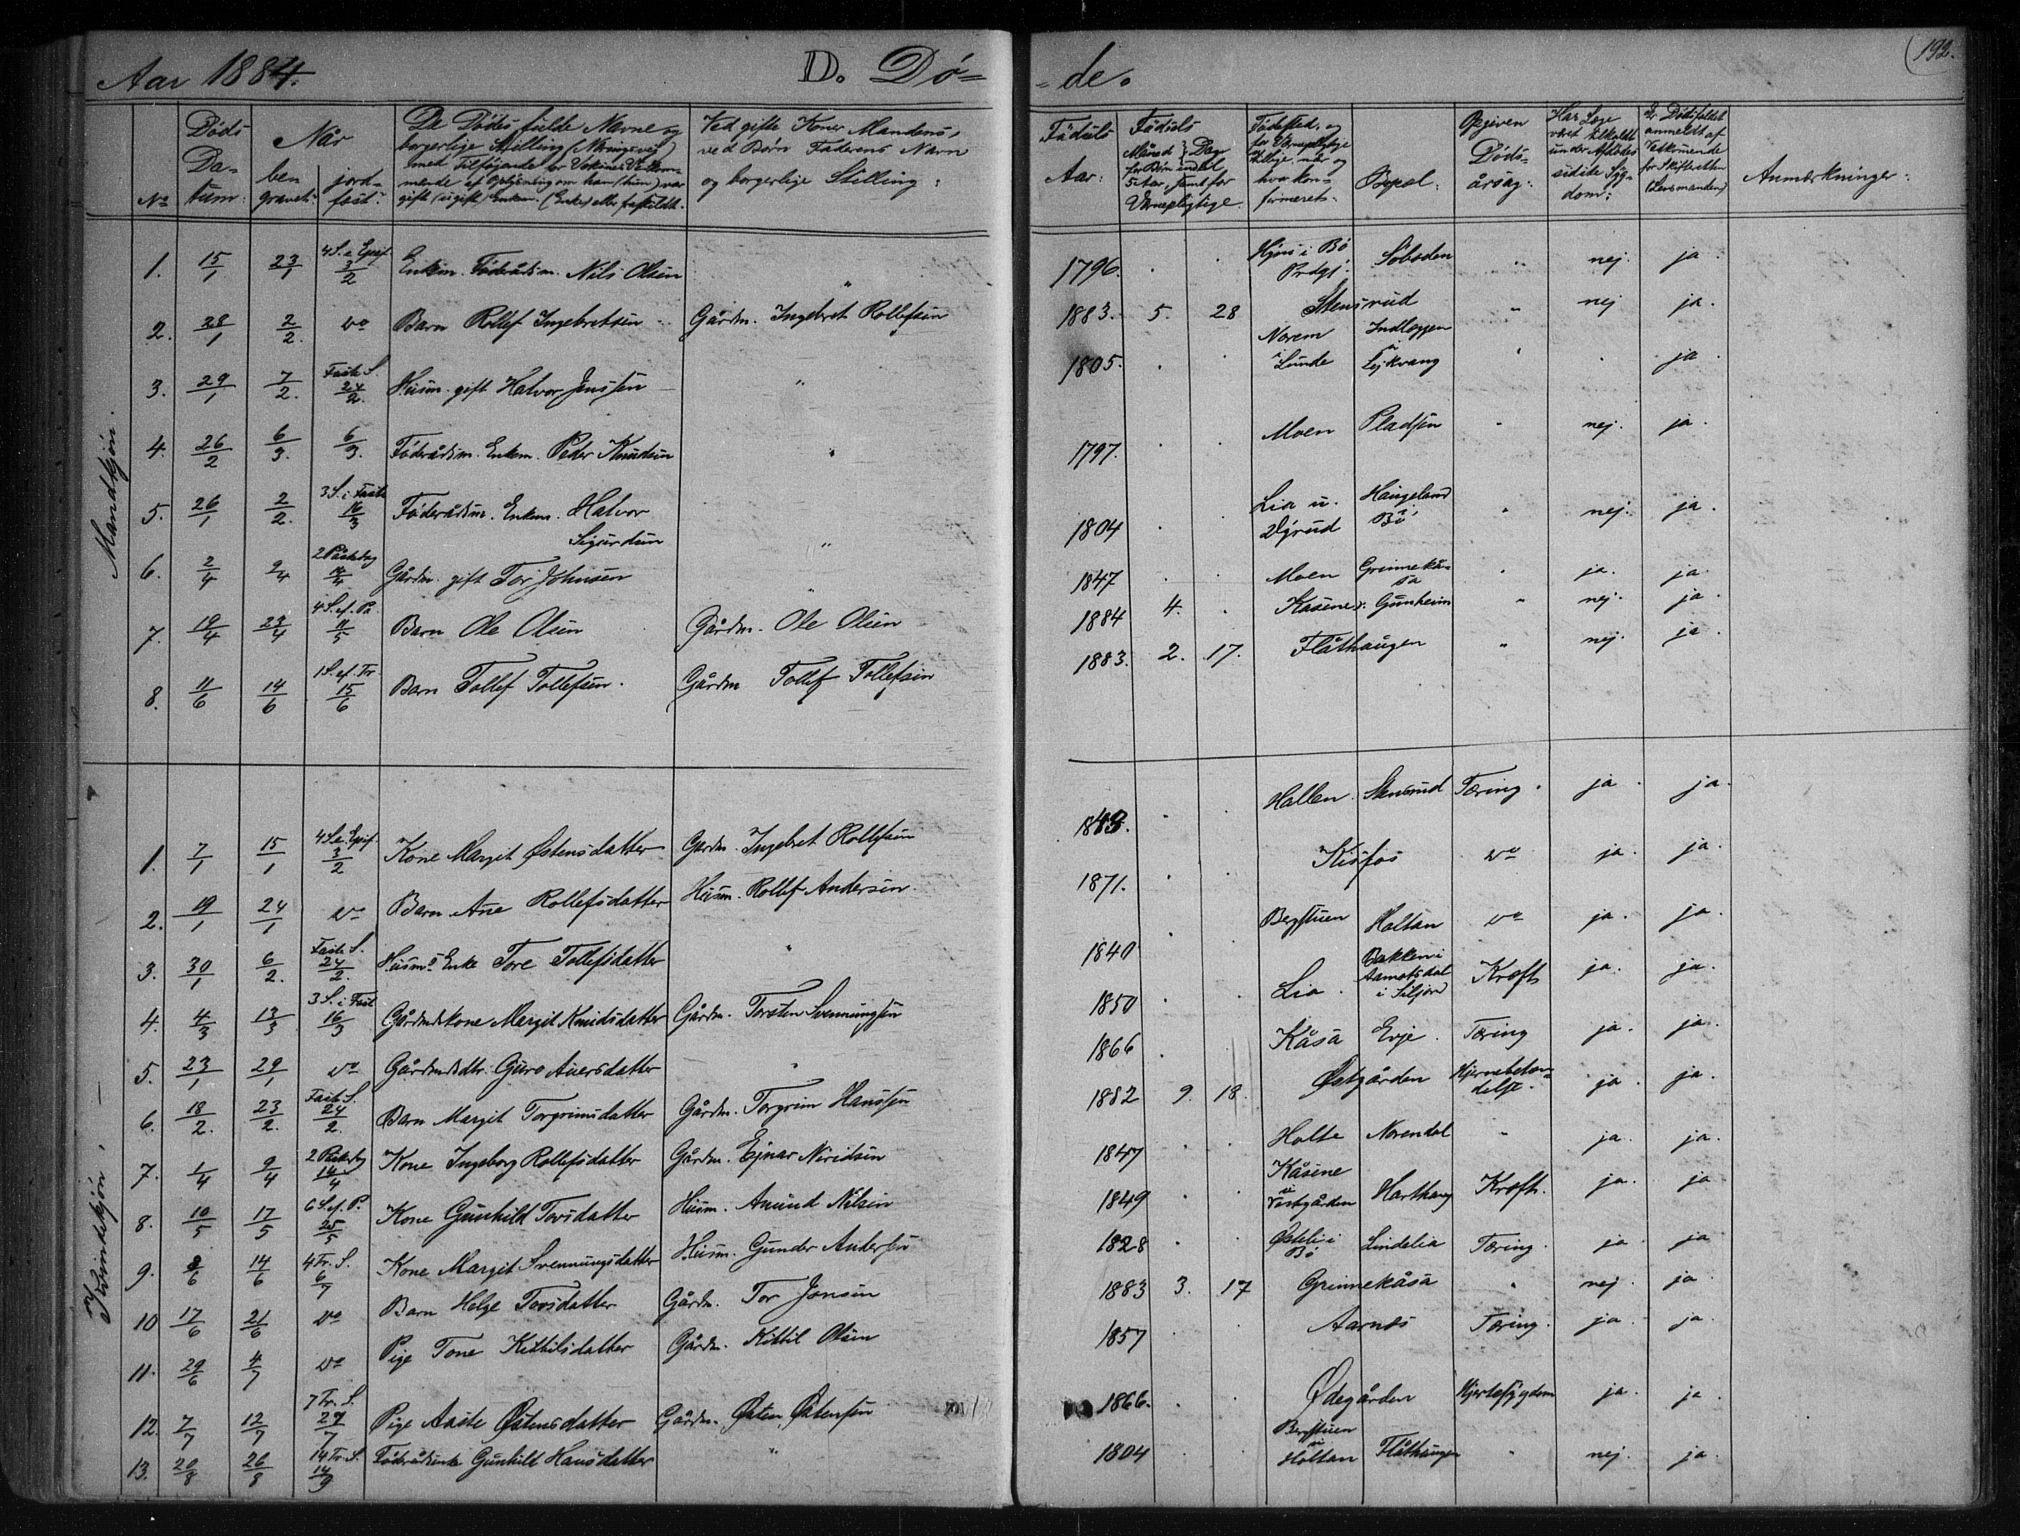 Aar 1884.
D. Dö-
-de.
192.
No
Döds Datum:
Når
begravet:
jordfæst:
De Dødes fulde Navne og
borgerlige Stilling (Næringsvei)
Ved gifte Koner Mandens,
ved Børn Faderens Navn
og borgerlige Stilling:
Födsels
Aar:
Födsels
Måned
Dag
for Börn indtil
5 Aar, samt for
Værnepligtige.
Födested, og
for Værnepligtige
tillige, når og
hvor konfirmeret.
Bopæl.
Opgiven
Døds-
årsag:
Har Læge
været tilkaldt
under Afdødes
sidste Sygdom:
Er Dødsfaldet
anmeldt af
Vedkommende
for Skifteretten
(Lensmanden)
Anmærkninger:
Mandkjön.
1. 15/1 23/1 4 S. e. Epif. 3/2 Enkm. Föderådsm. Nils Olsen " 1796. Hjøns i Bø Prdgj. Soboden " nej. ja.
2. 28/1 2/2. do Barn Rollef Ingebretsen Gårdm. Ingebret Rollefsen 1883. 5. 28 Stensrud " nej ja.
3. 29/1 7/2. Faste S. 24/2. Husm. gift Halvor Jenssen " 1805. Norem i Lunde Indlæggen u Ejkvang " ja
4. 26/2 6/3. 6/3. Föderådsm. Enkm. Peder Knudsen " 1797. Moen Pladsen " nej. ja.
5. 26/1 2/2. 3 S. i Faste 16/3 Föderådsm. Enkm. Halvor Sigurdsen " 1804 Lia u. Haugeland i Bö " nej. ja.
6. 2/4 9/4 2 Påskedag 14/4 Gårdm. gift Tor Johnsen " 1847 Moen Grinnekåsa " ja. ja.
7. 19/4 29/4 4 S. ef. På 11/5 Barn Ole Olsen Gårdm. Ole Olsen 1884 4. Kåsene u. Gunheim " nej. ja.
8. 11/6 14/6 1 S. ef. Tr. 15/6 Barn Tollef Tollefsen. Gårdm Tollef Tollefsen 1883. 2. 17. Flåthaugen " nej. ja.
Kvindekjön.
1. 7/1 15/1 4 S. e. Epif. 3/2 Kone Margit Østensdatter Gårdm. Ingebret Rollefsen 1843. Hallen. Stensrud Tæring. ja. ja.
2. 19/1 24/1 do Barn Ane Rollefsdatter Husm. Rollef Andersen. 1871. Kisfos do ja. ja.
3. 30/1 6/2. Faste S. 24/2. Husms Enke Tore Tollefsdatter " 1840 Bergstuen Holtan do ja. ja.
4. 4/3 13/3 3 S. i Fast 16/3 Gårdmdskone Margit Knudsdatter Gårdm. Torsten Svennungsen 1850 Lia. Bakken i Aamotsdal i Siljord Kræft ja. ja.
5. 23/1 29/1 do Gårdmdsdtr. Guro Aversdatter " 1866 Kåsa Evje. Tæring ja. ja.
6. 18/2. 23/2. Faste S. 24/2. Barn Margit Torgrimsdatter Gårdm. Torgrim Hanssen 1882 9. 18. Østgården Hjernebetændelse. ja. ja.
7. 1/4 9/4 2 Påskedag 14/4 Kone Ingeborg Rollefsdatter Gårdm. Ejnar Neridsen 1847 Holte Norendal " ja. ja.
8. 10/5 17/5 6 S. ef. P. 25/5 Kone Gunhild Torsdatter Husm. Amund Nilsen 1849 Kåsene u Vestgården Harthaug Kræft. ja. ja
9. 8/6 14/6 4 Tr. S. 6/7 Kone Margit Svennungsdatter Husm. Gunder Andersen 1828 Østeli i Bø Lindelia Tæring. ja. ja
10 17/6 21/6 do Barn Helge Torsdatter Gårdm. Tor Jonsen 1883 3. 17 Grinnekåsa " nej. ja.
11. 29/6 4/7 do Pige Tone Kittilsdatter Gårdm. Kittil Olsen 1857 Aarnæs Tæring. ja. ja.
12. 7/7 12/7 7 Tr. S. 27/7 Pige Aaste Østensdatter Gårdm. Østen Østensen 1866. Ødegården Hjertesygdom ja. ja
13. 20/8 26/8 14 Tr. S. 14/9 Föderådsenke Gunhild Hansdatter " 1804 Bergstuen u Holtan Flåthaugen " nej. ja.